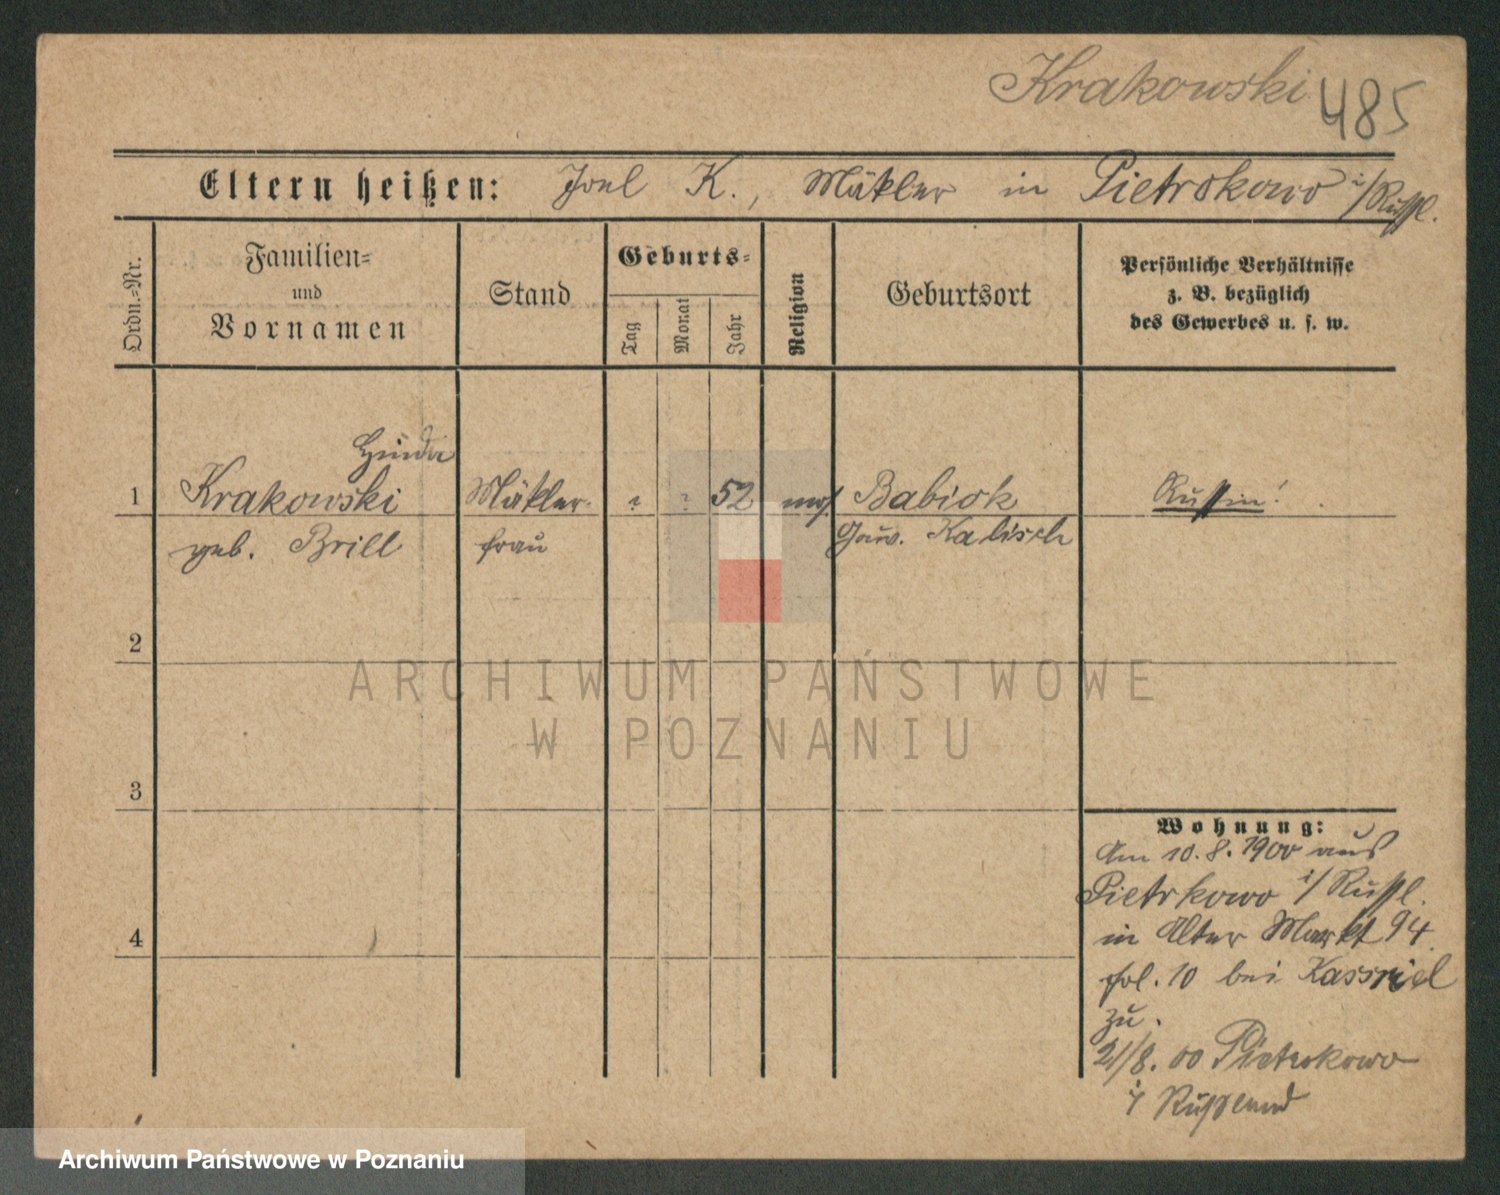 Krakowski 485
Eltern heißen: Joel K., Mäkler in Pietrokowo i/Rußl.
Ordn.-Nr.
Familien-
und
Vornamen
Stand
Geburts-
Tag
Monat
Jahr
Religion
Geburtsort
Persönliche Verhältnisse
z. B. bezüglich
des Gewerbes u. s. w.
Hinda
1 Krakowski Mäkler- ? ? 52 mos Babiok Russin!
geb. Brill frau Gouv. Kalisch
2
3
4
ARCHIWUM PAŃSTWOWE
W POZNANIU
Wohnung:
Am 10.8.1900 aus
Pietrkowo i/Rußl.
in Alter Markt 94
pol. 10 bei Kassriel
zu.
21/8.00 Pietrokowo
i/ Rußland
Archiwum Państwowe w Poznaniu